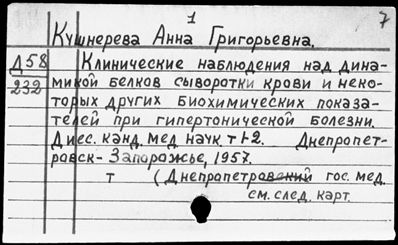 1
7
Кушнерева Анна Григорьевна.
Д58
232
Клинические наблюдения над дина-
микой белков сыворотки крови и неко-
торых других биохимических показа-
телей при гипертонической болезни.
Дисс. канд. мед. наук. т 1-2. Днепропет-
ровск- Запорожье, 1957.
т (Днепропетровский гос. мед.
см. след. карт.